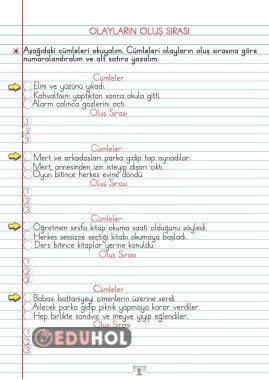 OLAYLARIN OLUŞ SIRASI
* Aşağıdaki cümleleri okuyalım. Cümleleri olayların oluş sırasına göre
numaralandıralım ve alt satıra yazalım.
Cümleler
Elini ve yüzünü yıkadı.
Kahvaltısını yaptıktan sonra okula gitti.
Alarm çalınca gözlerini açtı.
Oluş Sırası
1
2
3
Cümleler
Mert ve arkadaşları parka gidip top oynadılar.
Mert, annesinden izin isteyip dışarı çıktı.
Oyun bitince herkes evine döndü.
Oluş Sırası
1
2
3
Cümleler
Öğretmen sınıfa kitap okuma saati olduğunu söyledi.
Herkes sessizce seçtiği kitabı okumaya başladı.
Ders bitince kitaplar yerine konuldu.
Oluş Sırası
1
2
3
Cümleler
Babası battaniyeyi çimenlerin üzerine serdi.
Ailecek parka gidip piknik yapmaya karar verdiler.
Hep birlikte sandviç ve meyve yiyip eğlendiler.
Oluş Sırası
1
2
3
EDUHOL